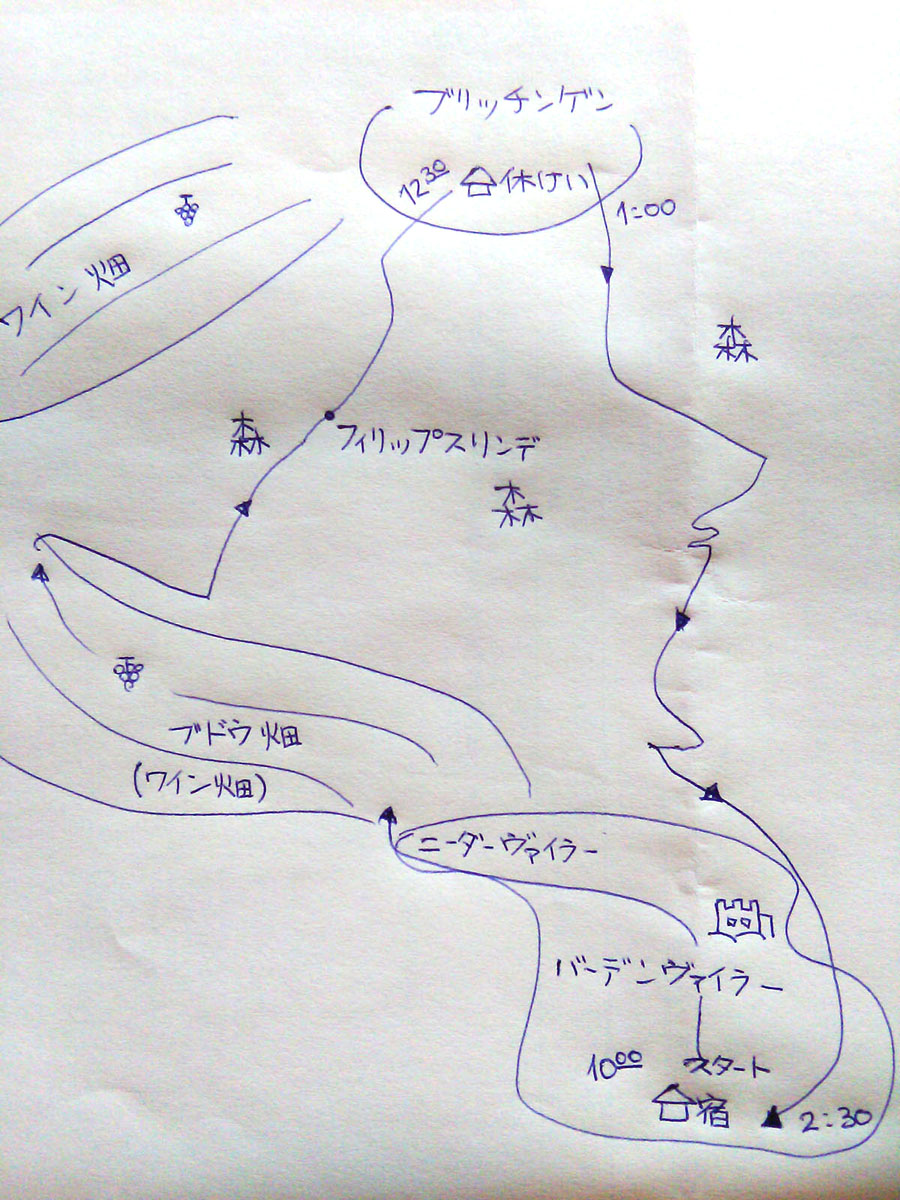 ブリッチンゲン
12 30
休けい
1:00
ワイン畑
森
森
フィリップスリンデ
森
ブドウ畑
(ワイン畑)
ニーダーヴァイラー
バーデンヴァイラー
10 00 スタート
宿 2:30